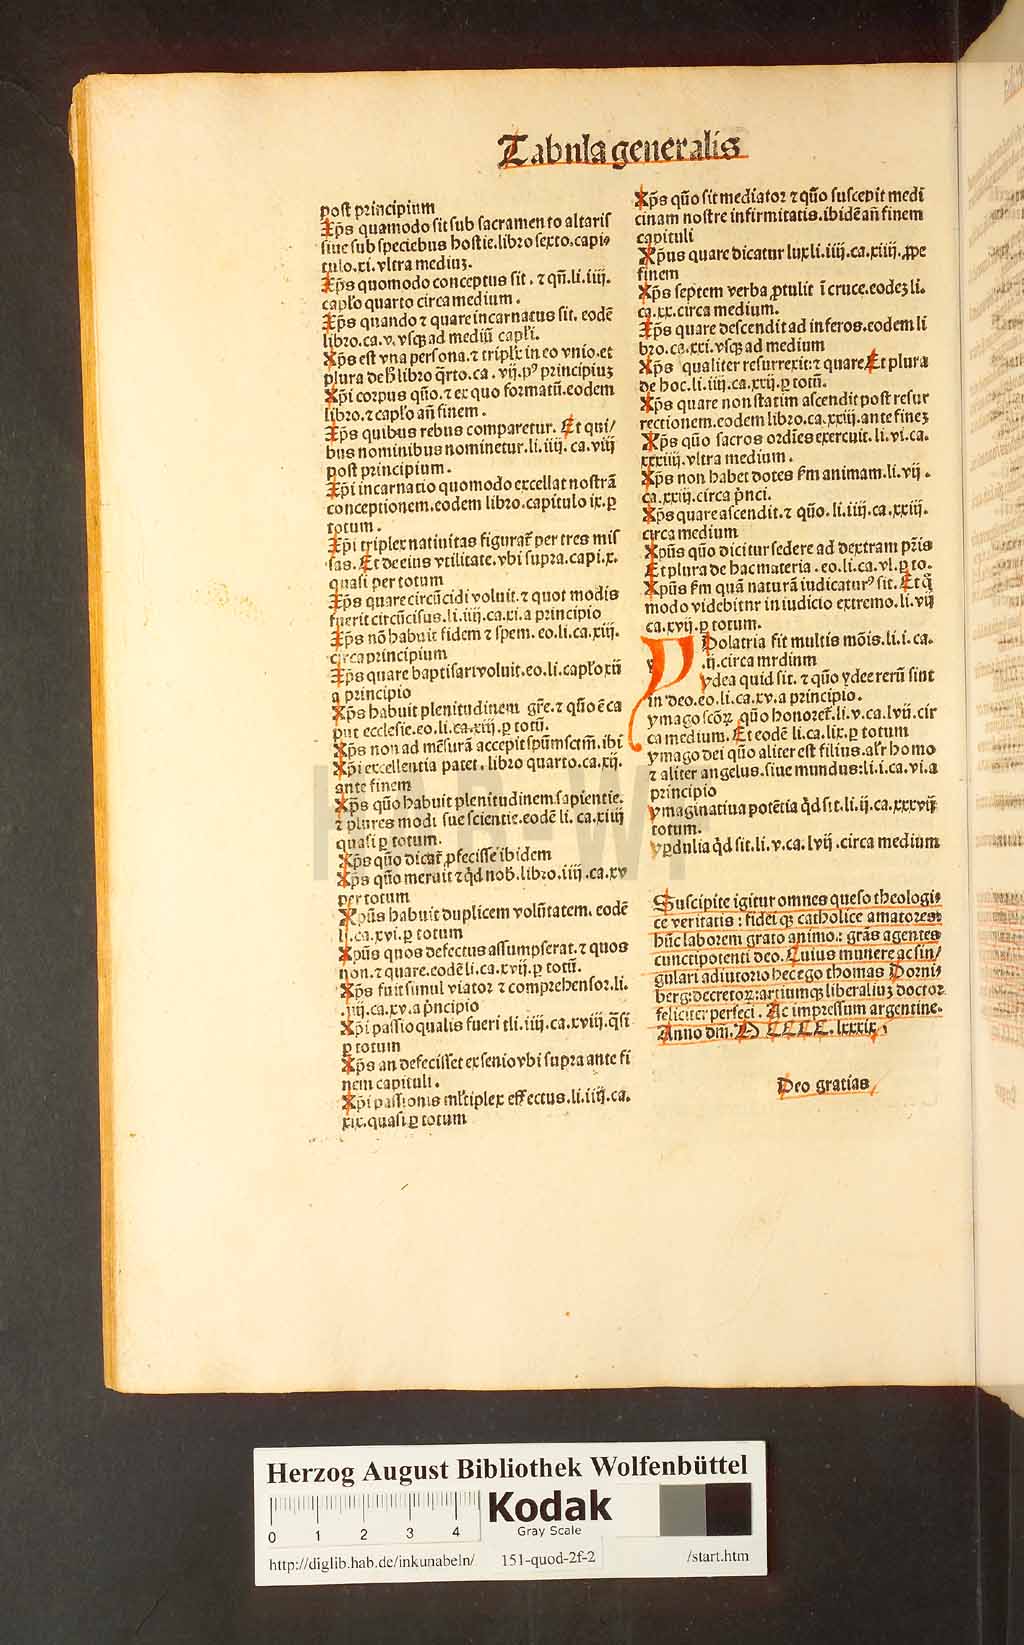 Tabula generalis
post principium
Xp̄s quamodo sit sub sacramento altaris
siue sub speciebus hostie.libro sexto.capi⸗
tulo.xi.vltra mediuꝫ.
Xp̄s quomodo conceptus sit.⁊ qn̄.li.iiij.
capl'o quarto circa medium.
Xp̄s quando ⁊ quare incarnatus sit. eodē
libro.ca.v.vsqꝫ ad mediū capl'i.
Xp̄s est vna persona.⁊ triplex in eo vnio.et
plura de h̄ libro q̄rto.ca.vij.pꝰ principiuꝫ
Xp̄i corpus quō.⁊ ex quo formatū.eodem
libro.⁊ capl'o an̄ finem.
Xp̄s quibus rebus comparetur. Et qui/
bus nominibus nominetur.li.iiij.ca.viij
post principium.
Xp̄i incarnatio quomodo excellat nostrā
conceptionem.eodem libro.capitulo ix.ꝑ
totum.
Xp̄i triplex natiuitas figurat᷑ per tres mis
sas.Et de eius vtilitate.vbi supra.capi.x.
quasi per totum
Xp̄s quare circūcidi voluit.⁊ quot modis
fuerit circūcisus.li.iiij.ca.xi.a principio
Xp̄s nō habuit fidem ⁊ spem.eo.li.ca.xiij.
circa principium
Xp̄s quare baptisari voluit.eo.li.capl'o xii
a principio
Xp̄s habuit plenitudinem gr̄e.⁊ quō ē ca
put ecclesie.eo.li.ca.xiij.ꝑ totū.
Xp̄s non ad mēsurā accepit spūm sctm̄.ibi
Xp̄i excellentia patet.libro quarto.ca.xij.
ante finem
Xp̄s quō habuit plenitudinem sapientie.
⁊ plures modi sue scientie.eodē li.ca.xiiij
quasi ꝑ totum.
Xp̄s quō dicat᷑ ꝓfecisse ibidem
Xp̄s quō meruit ⁊ qd̄ nob̄.libro.iiij.ca.xv
per totum
Xpūs habuit duplicem volūtatem.eodē
li.ca.xvi.ꝑ totum
Xpūs quos defectus assumpserat.⁊ quos
non.⁊ quare.eodē li.ca.xvij.ꝑ totū.
Xp̄s fuit simul viator ⁊ comprehensor.li.
.iiij.ca.xv.a p̄ncipio
Xp̄i passio qualis fuerit li.iiij.ca.xviij.q̄si
ꝑ totum
Xp̄s an defecisset ex senio vbi supra ante fi
nem capituli.
Xp̄i passionis ml'tiplex effectus.li.iiij.ca.
xix.quasi ꝑ totum
Xp̄s quō sit mediator ⁊ quō suscepit medi
cinam nostre infirmitatis.ibidē an̄ finem
capituli
Xpūs quare dicatur lux li.iiij.ca.xiiij.ꝓpe
finem
Xp̄s septem verba ꝓtulit ī cruce.eodeꝫ li.
ca.xx.circa medium.
Xp̄s quare descendit ad inferos.eodem li
bro.ca.xxi.vsqꝫ ad medium
Xp̄s qualiter resurrexit:⁊ quare.Et plura
de hoc.li.iiij.ca.xxij.ꝑ totū.
Xp̄s quare non statim ascendit post resur
rectionem.eodem libro.ca.xxiij.ante fineꝫ
Xp̄s quō sacros ordīes exercuit.li.vi.ca.
xxxiiij.vltra medium.
Xp̄s non habet dotes s̄m animam.li.vij.
ca.xxiij.circa p̄nci.
Xp̄s quare ascendit.⁊ quō.li.iiij.ca.xxiij.
circa medium
Xpūs quō dicitur sedere ad dextram pr̄is
Et plura de hac materia.eo.li.ca.vl.ꝑ to.
Xpūs s̄m quā naturā iudicaturꝰ sit.Et q̄
modo videbitur in iudicio extremo.li.vij
ca.xvij.ꝑ totum.
Y Dolatria fit multis mōis.li.i.ca.
.ij.circa mrdium
ydea quid sit.⁊ quō ydee rerū sint
in deo.eo.li.ca.xv.a principio.
ymago scōꝝ quō honoret᷑.li.v.ca.lvij.cir
ca medium.Et eodē li.ca.lix.ꝑ totum
ymago dei quō aliter est filius.al'r homo
⁊ aliter angelus.siue mundus:li.i.ca.vi.a
principio
ymaginatiua potētia qd̄ sit.li.ij.ca.xxxvij
totum.
yꝑdulia qd̄ sit.li.v.ca.lvij.circa medium
Suscipite igitur omnes queso theologi⸗
ce veritatis: fideiqꝫ catholice amatores:
hūc laborem grato animo.: gr̄as agentes
cunctipotenti deo.Cuius munere ac sin/
gulari adiutorio hec ego thomas Dorni⸗
berg:decretoꝝ:artiumqꝫ liberaliuꝫ doctor
feliciter perfeci. Ac impressum argentine.
Anno dm̄.M CCCC.lxxxix.
Deo gratias
HAB-W
Herzog August Bibliothek Wolfenbüttel
0 1 2 3 4
Kodak
Gray Scale
http://diglib.hab.de/inkunabeln/ 151-quod-2f-2 /start.htm